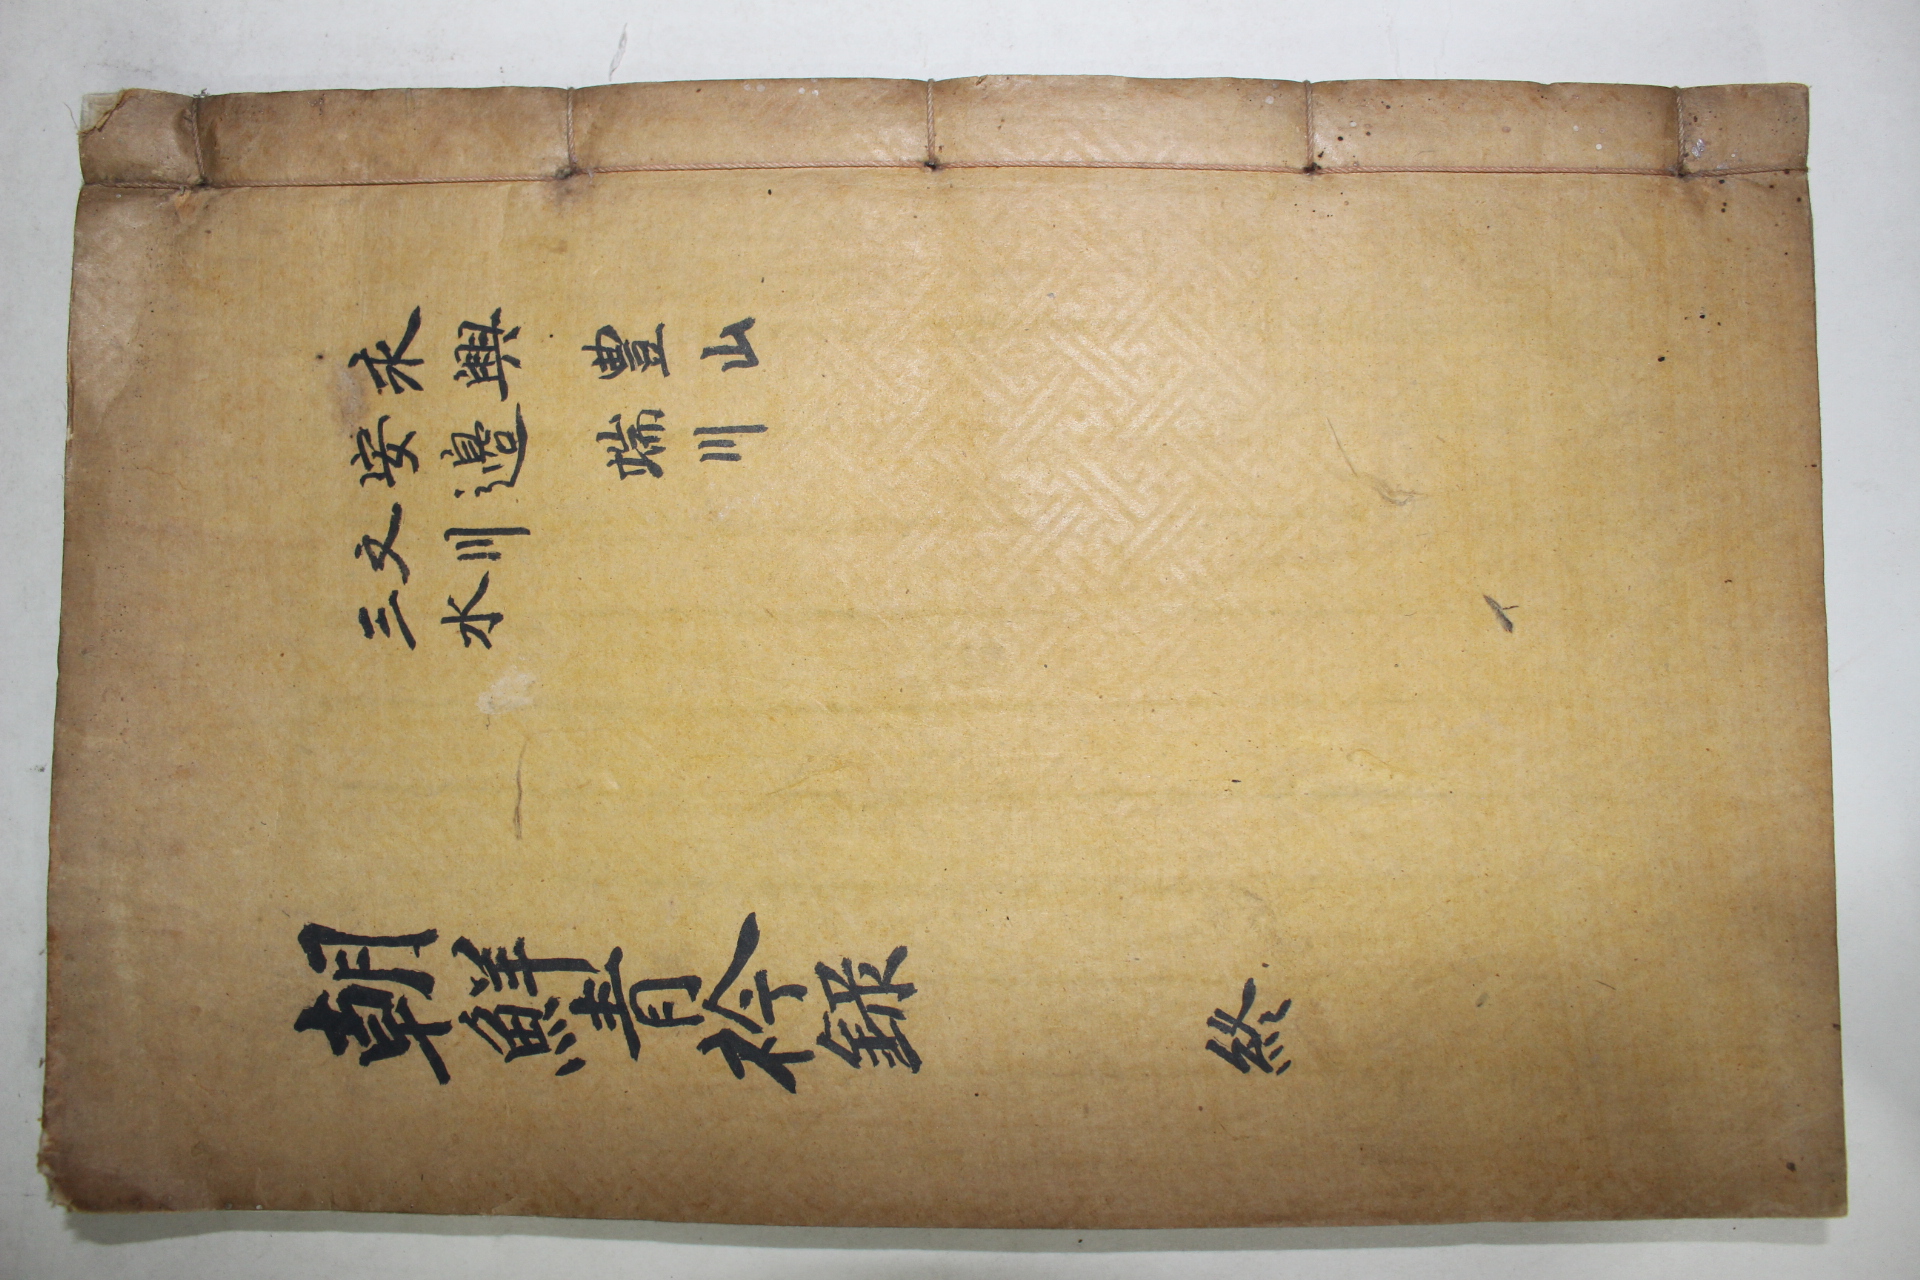 永興 豊山
安邊 端川
文川
三水
朝鮮青衿錄 終